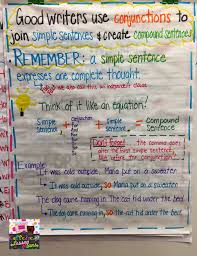 Good Writers use conjunctions to
join simple sentences & create compound sentences
REMEMBER: a simple sentence
expresses one complete thought.
we also call this an independent clause
Think of it like an equation!
Simple Sentence + Conjunction + Simple Sentence = Compound Sentence
Don't forget! The comma goes
after the first simple sentence,
but before the conjunction!
Example:
It was cold outside. Mama put on a sweater.
It was cold outside, so Mama put on a sweater.
The dog came running in. The cat hid under the bed.
The dog came running in, so the cat hid under the bed.